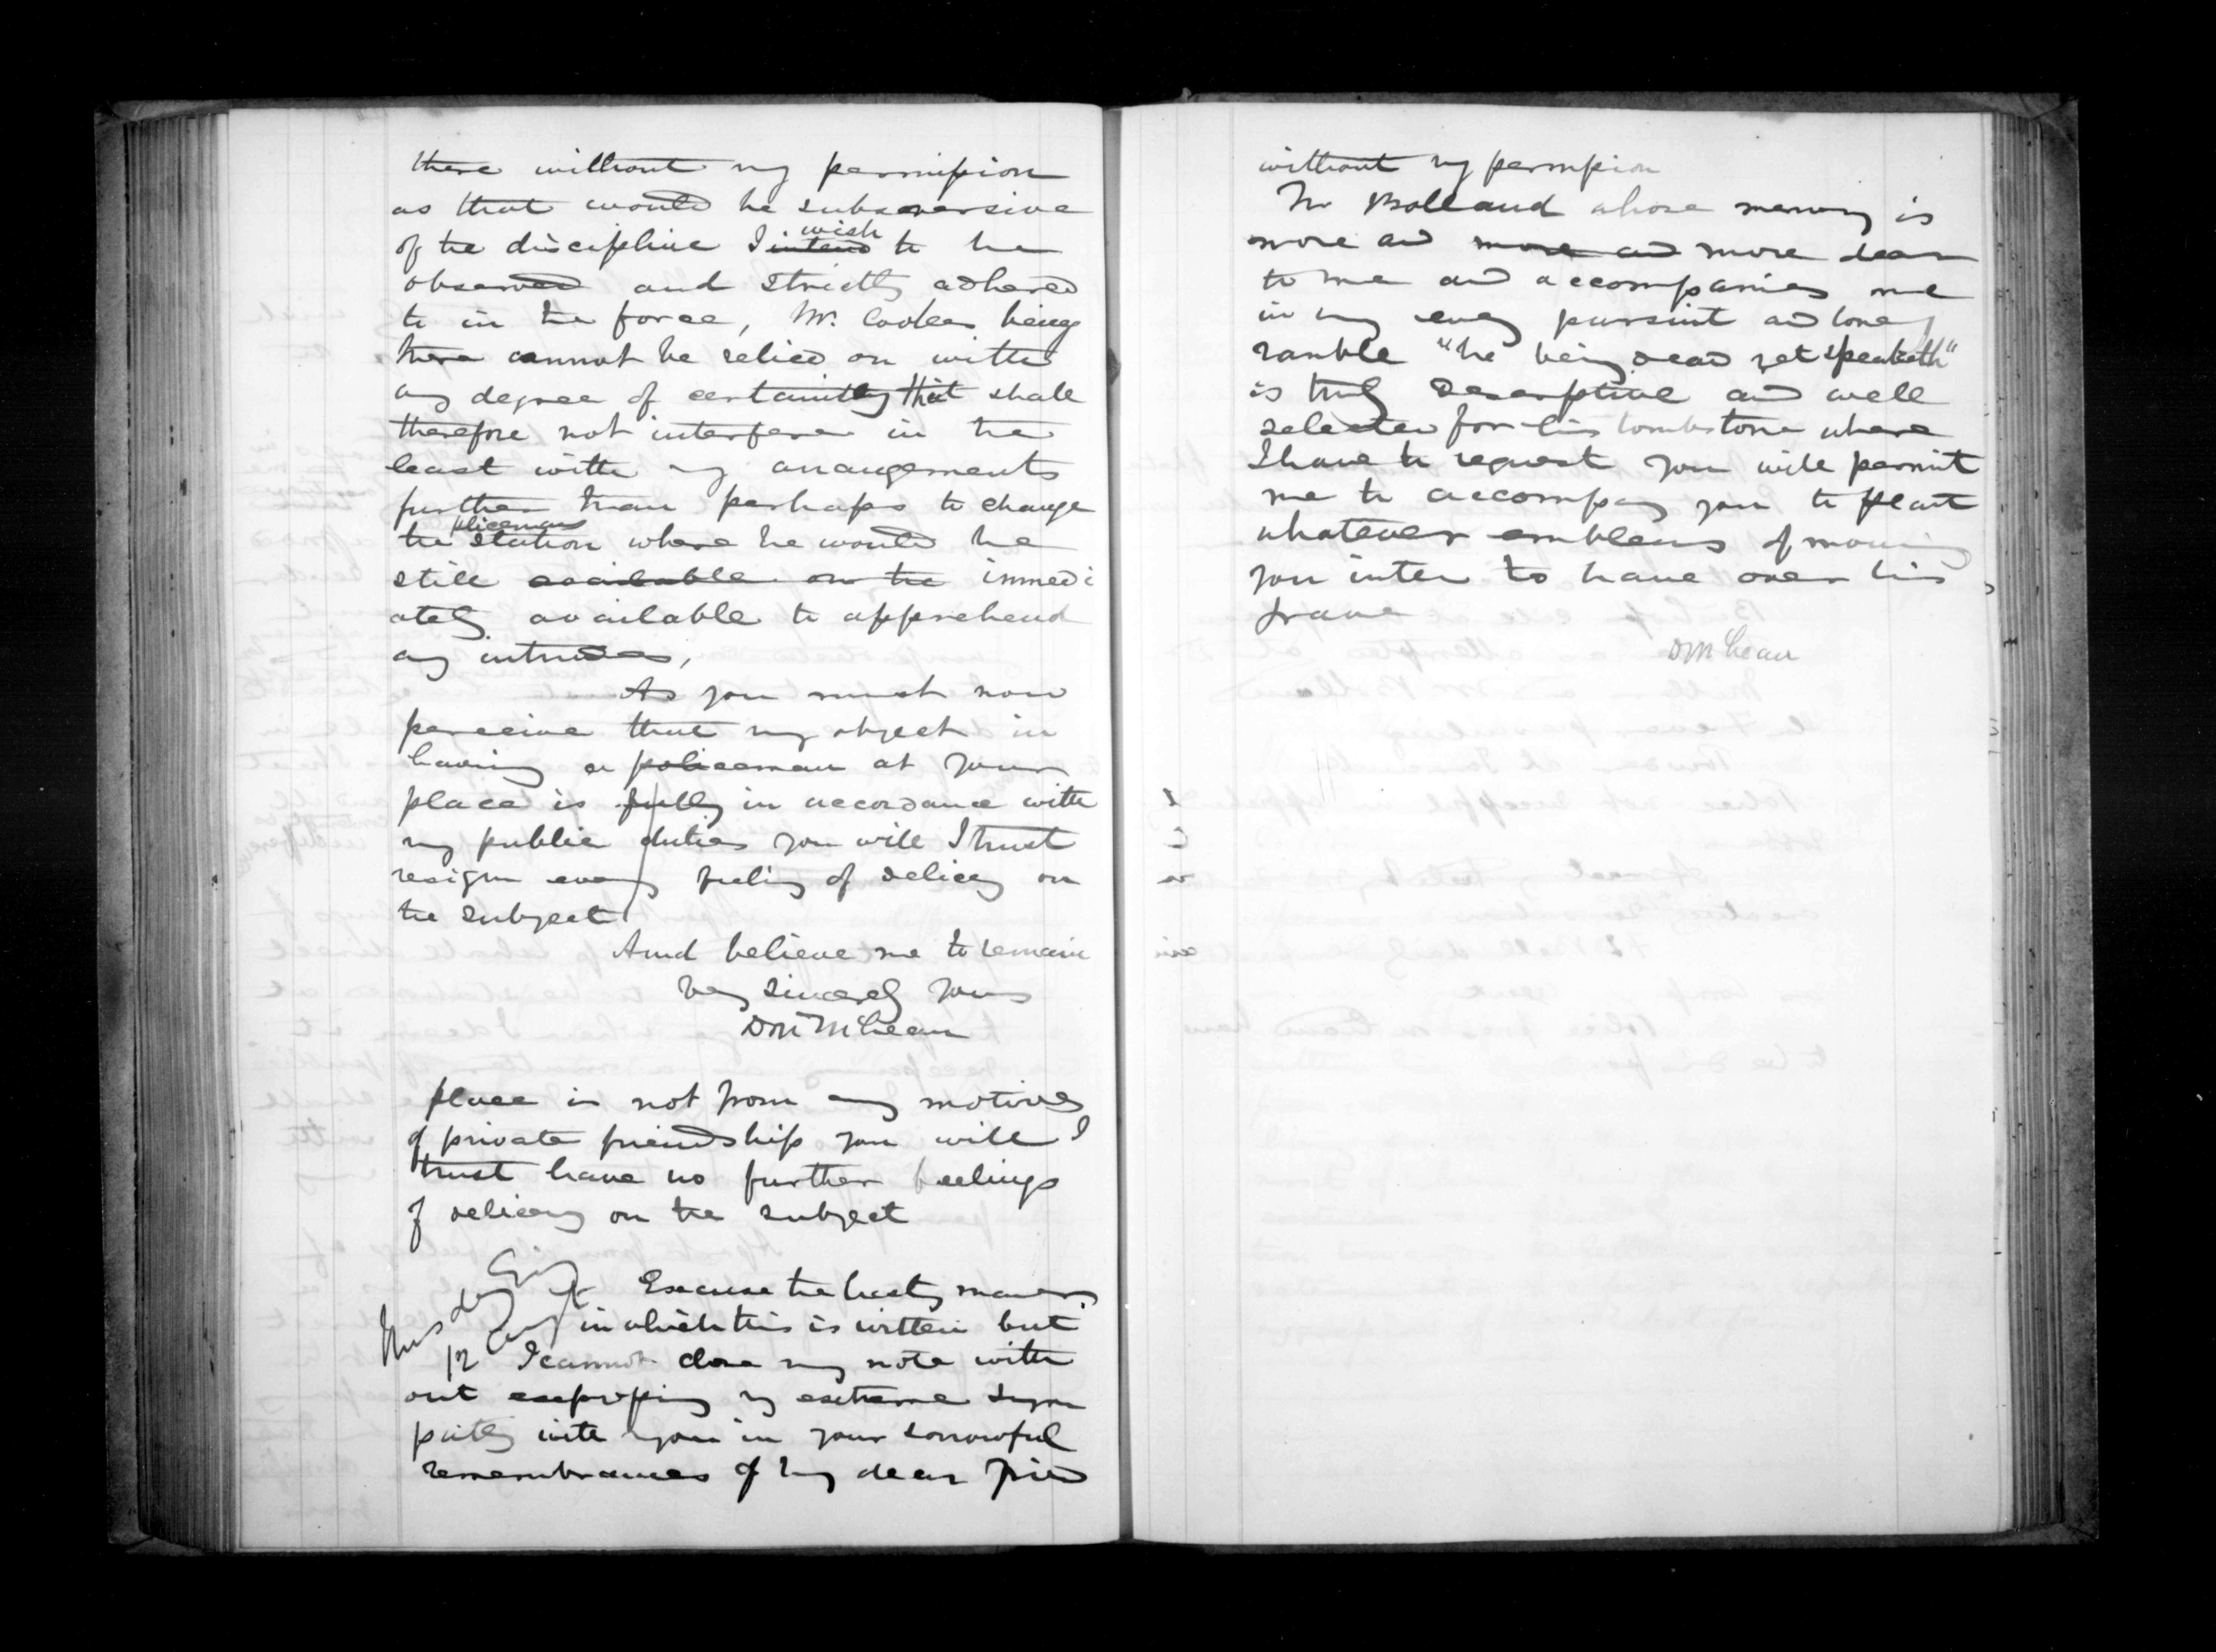 there without my permission
as that would be subversive
of the discipline I intend wish to be
observed and strictly adhered
to in the force, Mr. Cookes being
there cannot be relied on with
any degree of certainty that shall
therefore not interfere in the
least with my arrangements
further than perhaps to change
the policemans station where he would be
still available on the immedi
ately available to apprehend
any intruder,
As you must now
perceive that my object in
having a policeman at your
place is fully in accordance with
my public duties you will I trust
resign every feeling of delicacy on
the subject
And believe me to remain
very sincerely yours
DM McLean
place is not from any motives
of private friendship you will I
trust have no further feelings
of delicacy on the subject
Excuse the hasty manner
in which this is written but
12 I cannot close my note with
out expressing my extreme sym
pathy with you in your sorrowful
remembrances of my dear friend
without my permission
Mr Bolland whose memory is
more and more and more dear
to me and accompanies me
in my every pursuit and lonely
ramble "he being dead yet speaketh"
is truly descriptive and well
selected for his tombstone where
I have to request you will permit
me to accompany you to plant
whatever emblems of mourning
you inten to have over his
grave
DMcLean